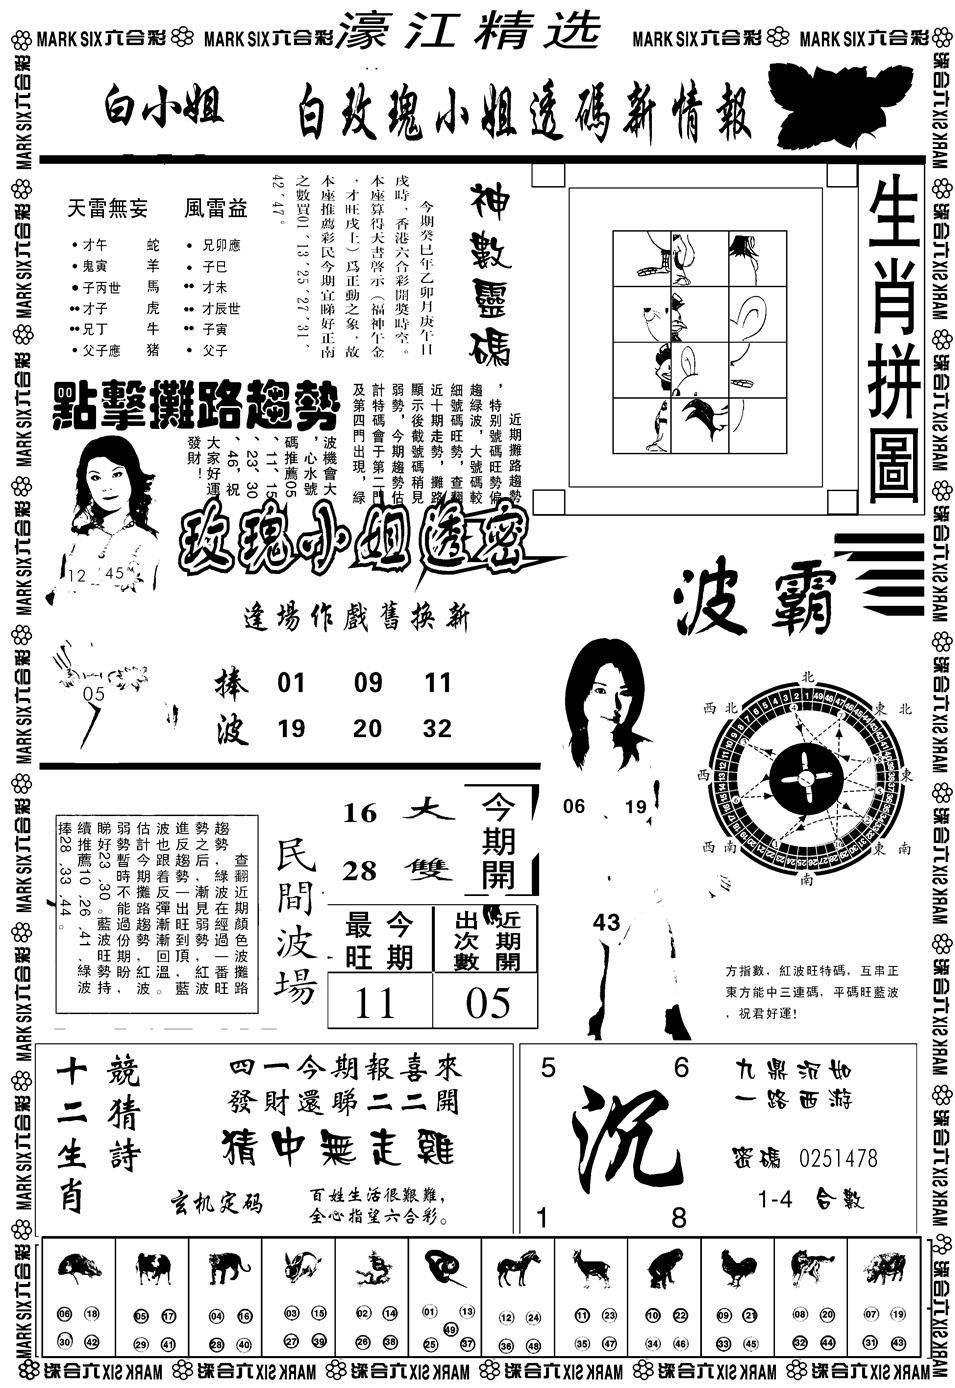 濠江精选
MARK SIX六合彩 MARK SIX六合彩 MARK SIX六合彩 MARK SIX六合彩
白小姐 白玫瑰小姐透碼新情報
天雷無妄 風雷益
• 才午 蛇 • 兄卯應
• 鬼寅 羊 • 子巳
• 子丙世 馬 •• 才未
•• 才子 虎 •• 才辰世
•• 兄丁 牛 •• 子寅
• 父子應 猪 • 父子
神數靈碼
今期癸巳年乙卯月庚午日
戌時，香港六合彩開獎時空。
本座算得天書啓示（福神午金
，才旺戌上）爲正動之象，故
本座推薦彩民今期宜睇好正南
之數買01、13、25、27、31、
42、47。
生肖拼圖
點擊攤路趨勢
近期攤路趨勢
，特别號碼旺勢偏
趨綠波，大號碼較
細號碼旺勢，查翻
近十期走勢，攤路
顯示後截號碼稍見
弱勢，今期趨勢估
計特碼會于第二門
及第四門出現，綠
波機會大
，心水號
碼推薦05
、11、15
、23、30
、46，祝
大家好運
發財！
12 45
05
玫瑰小姐透密
逢場作戲舊换新
捧 01 09 11
波 19 20 32
波霸
北
東北
東
東南
南
西南
西
西北
06 19
43
方指數，紅波旺特碼，互串正
東方能中三連碼，平碼旺藍波
，祝君好運！
查翻近期顔色波攤路
趨勢，綠波在經過一番旺
勢之后，漸見弱勢，紅波
進反趨勢一出旺到頂，藍
波也跟着反彈漸漸回溫。
估計今期攤路趨勢紅波
弱勢暫時不能過份期盼，
睇好23、30。藍波旺勢持
續推薦10、26、41、綠波
捧28、33、44。
民間波場
16 大 今期開
28 雙
最旺 今期
出次數 近期開
11 05
十二生肖
競猜詩
四一今期報喜來
發財還睇二二開
猜中無走雞
玄机定码
百姓生活很艱難，
全心指望六合彩。
5 6
沉
1 8
九鼎沉如
一路西游
密碼 0251478
1-4 合數
06 18 30 42
05 17 29 41
04 16 28 40
03 15 27 39
02 14 26 38
01 13 49 25 37
12 24 36 48
11 23 35 47
10 22 34 46
09 21 33 45
08 20 32 44
07 19 31 43